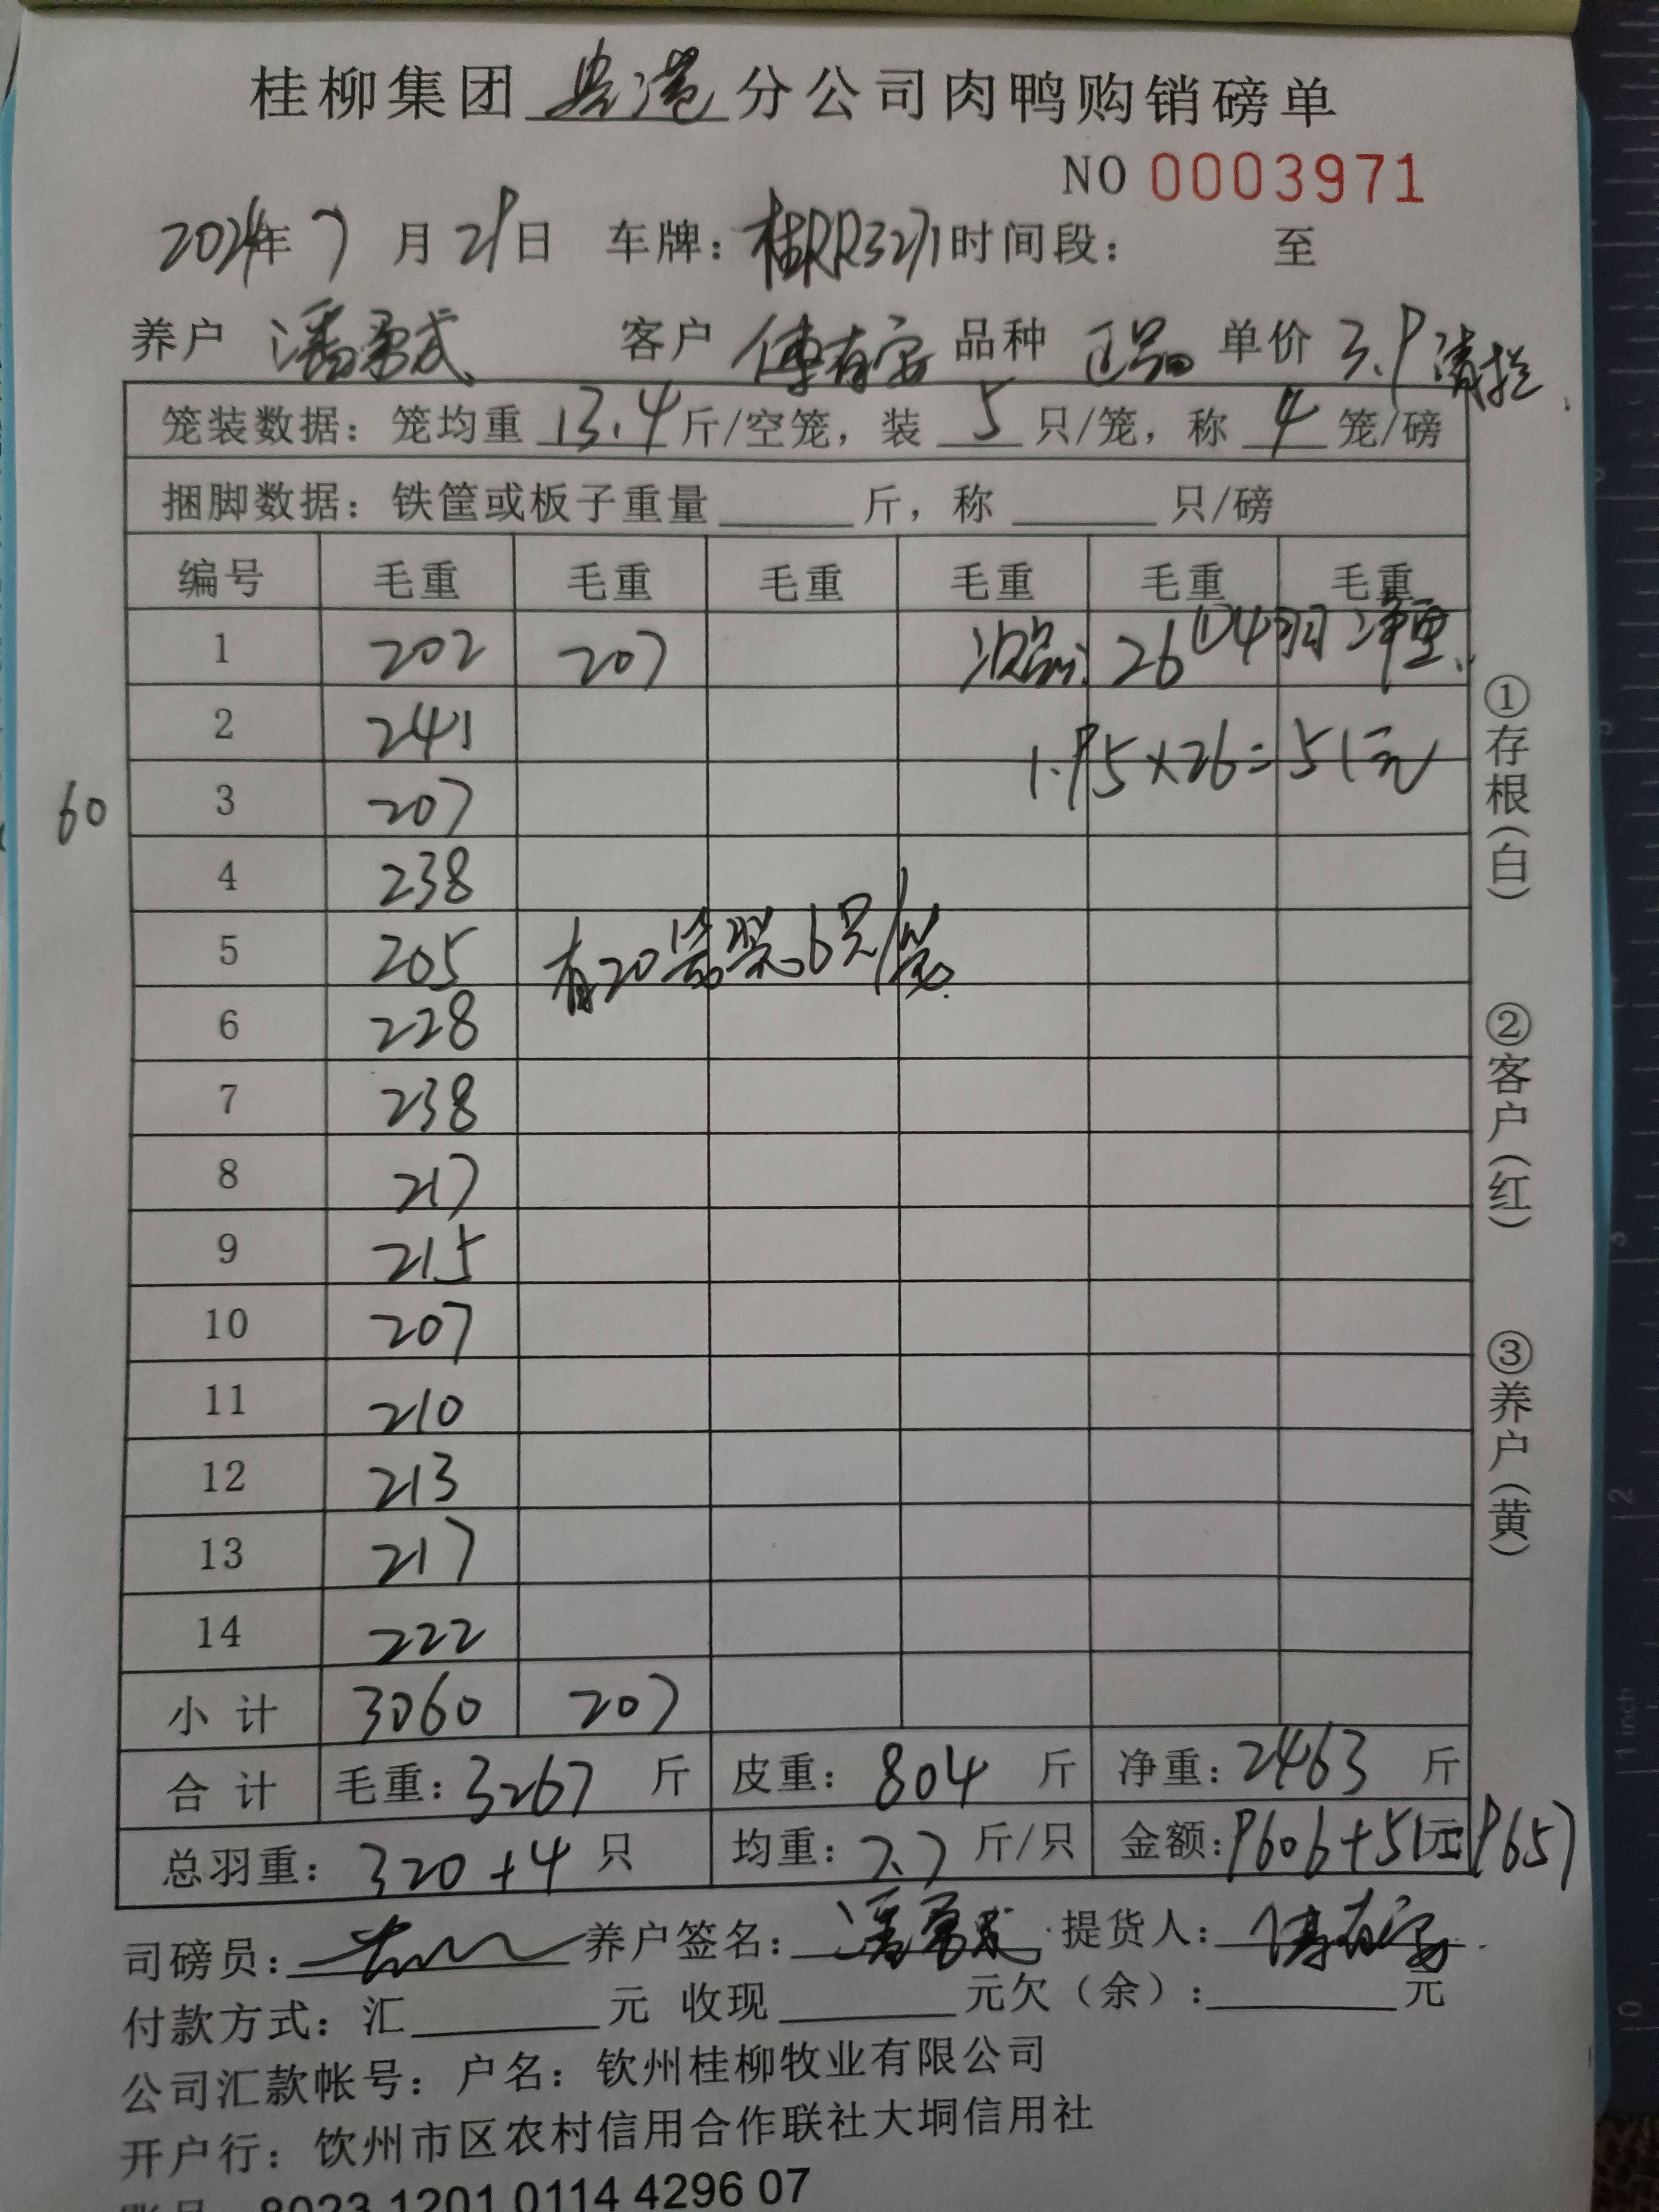 桂柳集团贵港分公司肉鸭购销磅单
NO 0003971
2024年7月29日 车牌：桂RR3271 时间段： 至
养户 潘勇武 客户 傅有安 品种 正品 单价 3.9 清拦
笼装数据：笼均重 13.4 斤/空笼，装 5 只/笼，称 4 笼/磅
捆脚数据：铁筐或板子重量 斤，称 只/磅
编号 毛重 毛重 毛重 毛重 毛重 毛重
1 202 207 次品: 26 ①4羽 净重
2 241
1.95×26=51元
60 3 207
4 238
5 205 有20笼装6只/笼
6 228
7 238
8 217
9 215
10 207
11 210
12 213
13 217
14 222
小计 3060 207
合计 毛重：3267 斤 皮重：804 斤 净重：2463 斤
总羽重：320+4 只 均重：7.7 斤/只 金额：9606+51元 9657
司磅员： 养户签名：潘勇武 提货人：傅有安
付款方式：汇 元 收现 元欠（余）： 元
公司汇款帐号：户名：钦州桂柳牧业有限公司
开户行：钦州市区农村信用合作联社大垌信用社
8023 1201 0114 4296 07
①存根（白）
②客户（红）
③养户（黄）